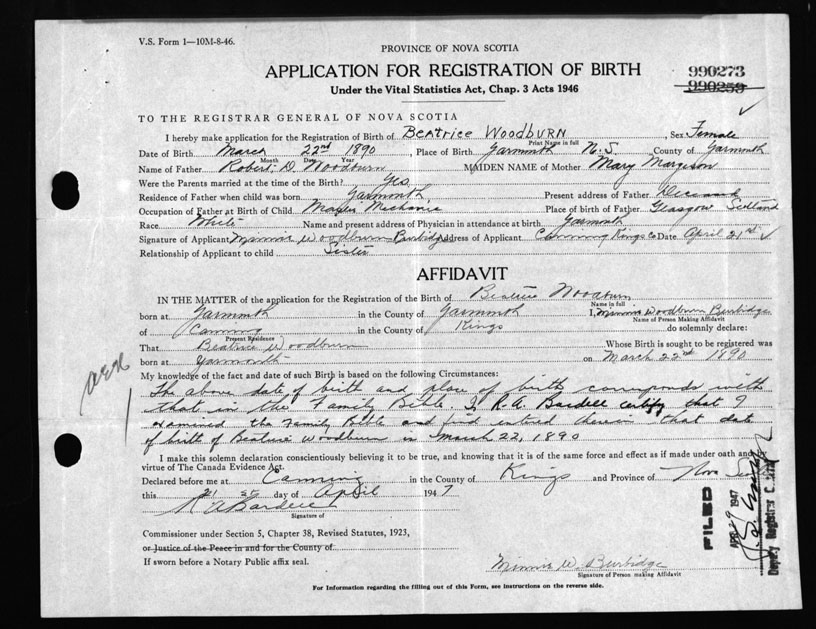 V.S. Form 1—10M-8-46.
PROVINCE OF NOVA SCOTIA
APPLICATION FOR REGISTRATION OF BIRTH
990273
990259
Under the Vital Statistics Act, Chap. 3 Acts 1946
TO THE REGISTRAR GENERAL OF NOVA SCOTIA
I hereby make application for the Registration of Birth of Beatrice Woodburn, Sex Female
Print Name in full
Date of Birth March 22nd 1890 Place of Birth Yarmouth N.S County of Yarmouth
Month Date Year
Name of Father Robert D. Woodburn MAIDEN NAME of Mother Mary Margeson
Were the Parents married at the time of the Birth? Yes
Residence of Father when child was born Yarmouth Present address of Father Deceased
Occupation of Father at Birth of Child Master Mechanic Place of birth of Father Glasgow Scotland
Race White Name and present address of Physician in attendance at birth Yarmouth
Signature of Applicant Minnie Woodburn Burbidge Address of Applicant Canning Kings Co Date April 21st
Relationship of Applicant to child Sister
AFFIDAVIT
IN THE MATTER of the application for the Registration of the Birth of Beatrice Woodburn
Name in full
born at Yarmouth in the County of Yarmouth I, Minnie Woodburn Burbidge
Name of Person Making Affidavit
of Canning in the County of Kings do solemnly declare:
Present Residence
That Beatrice Woodburn Whose Birth is sought to be registered was
born at Yarmouth on March 22nd 1890
My knowledge of the fact and date of such Birth is based on the following Circumstances:
The above date of birth and place of birth corresponds with
that in the Family Bible I, R.A. Bardell certify that I
examined the Family Bible and find entered thereon that date
of birth of Beatrice Woodburn is March 22, 1890
I make this solemn declaration conscientiously believing it to be true, and knowing that it is of the same force and effect as if made under oath and by
virtue of The Canada Evidence Act.
Declared before me at Canning in the County of Kings and Province of Nova
this 21 day of April 1947
R A Bardell
Signature of
Commissioner under Section 5, Chapter 38, Revised Statutes, 1923,
or Justice of the Peace in and for the County of
If sworn before a Notary Public affix seal.
Minnie W. Burbidge
Signature of Person making Affidavit
For Information regarding the filling out of this Form, see instructions on the reverse side.
FILED
1947
Deputy Registrar